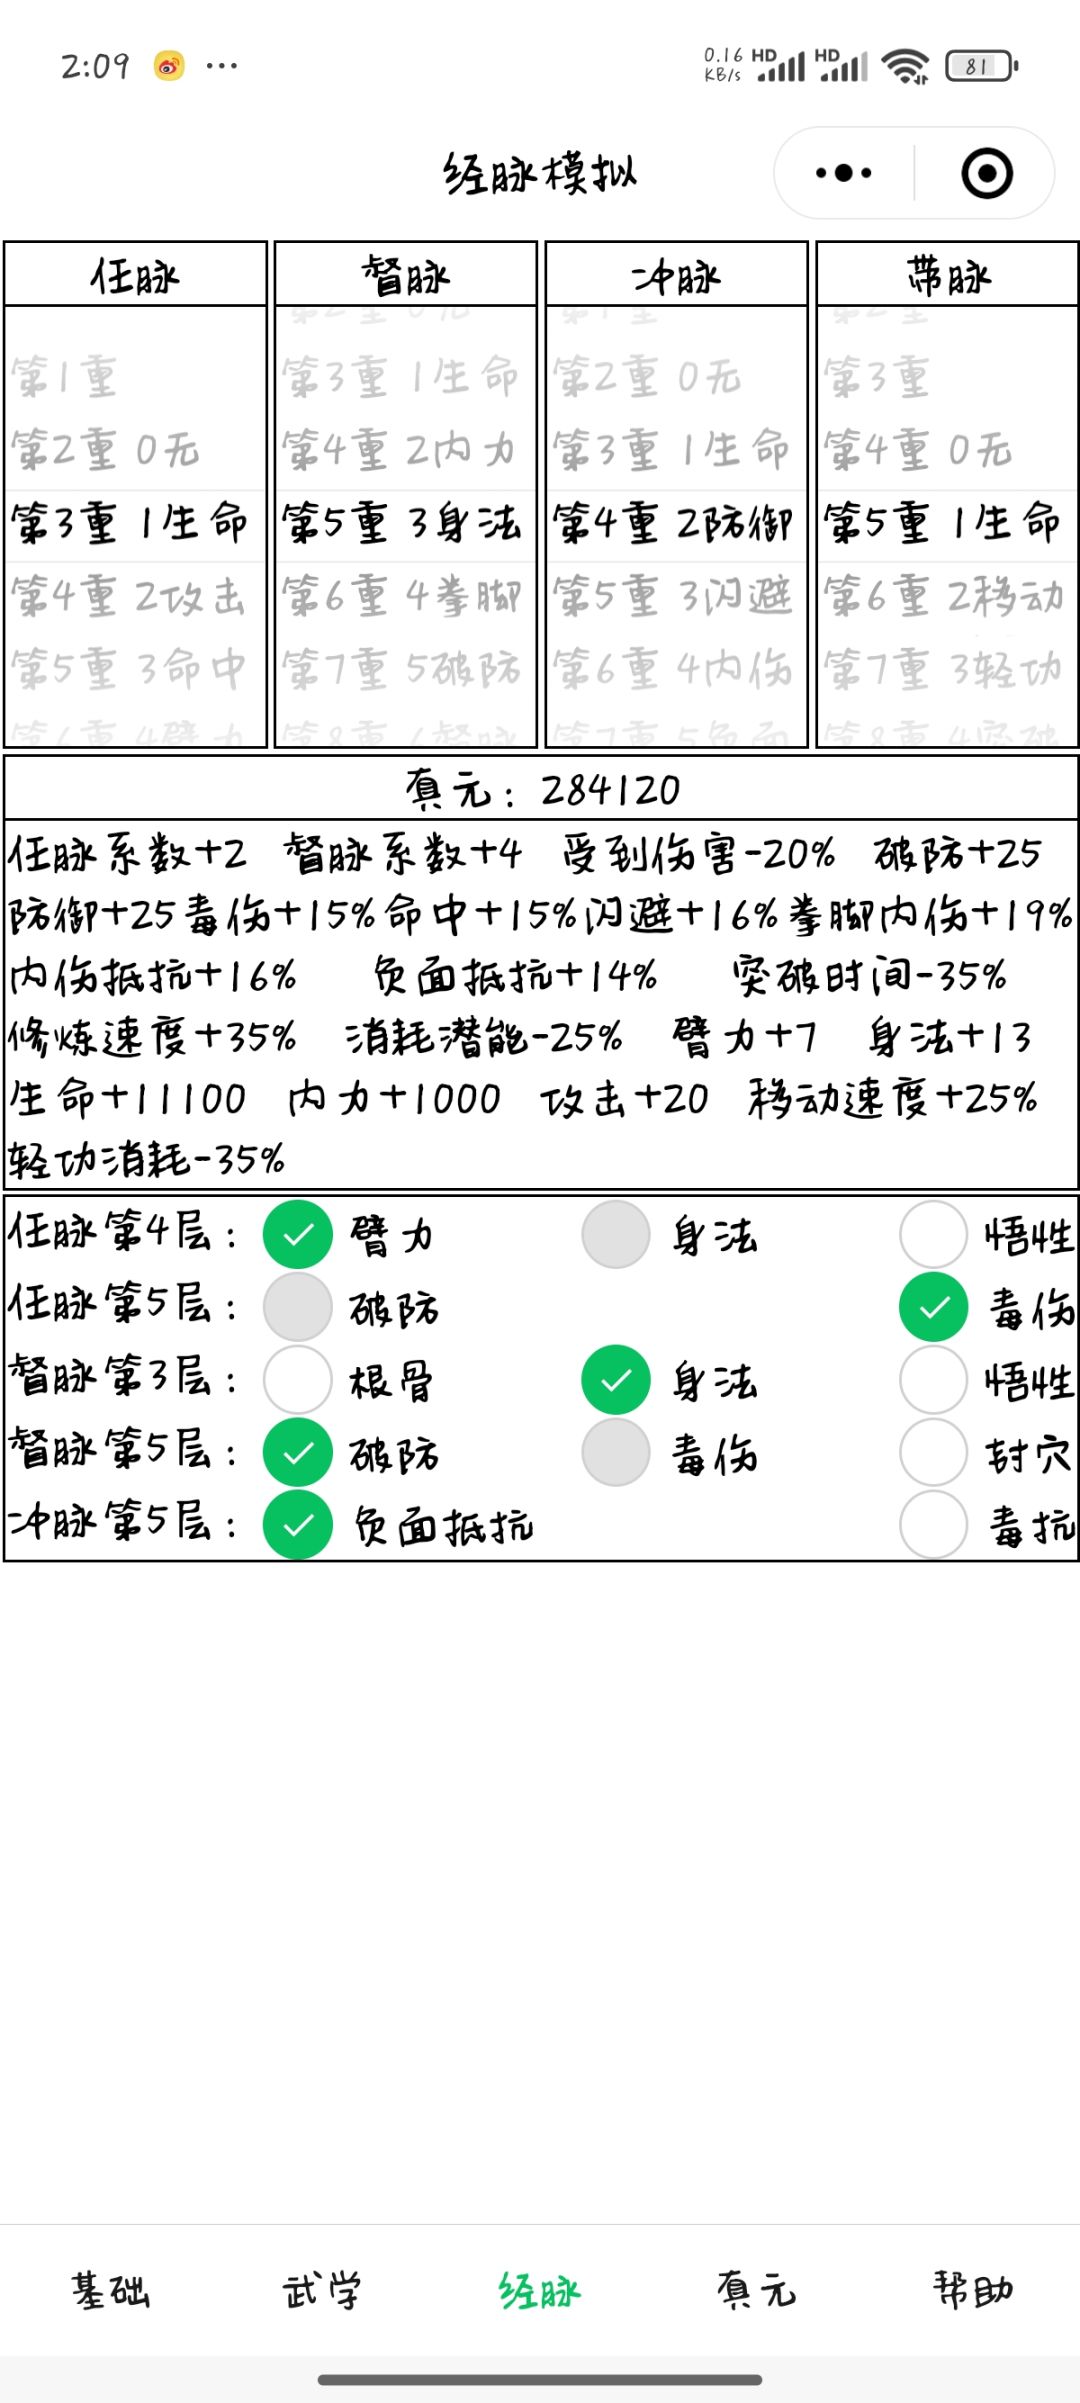 2:09 ...
0.16 KB/s HD HD 81
经脉模拟
任脉 督脉 冲脉 带脉
第2重 0无 第1重 第2重
第1重 第3重 1生命 第2重 0无 第3重
第2重 0无 第4重 2内力 第3重 1生命 第4重 0无
第3重 1生命 第5重 3身法 第4重 2防御 第5重 1生命
第4重 2攻击 第6重 4拳脚 第5重 3闪避 第6重 2移动
第5重 3命中 第7重 5破防 第6重 4内伤 第7重 3轻功
第6重 4臂力 第8重 6督脉 第7重 5负面 第8重 4突破
真元：284120
任脉系数+2 督脉系数+4 受到伤害-20% 破防+25
防御+25毒伤+15%命中+15%闪避+16%拳脚内伤+19%
内伤抵抗+16% 负面抵抗+14% 突破时间-35%
修炼速度+35% 消耗潜能-25% 臂力+7 身法+13
生命+11100 内力+1000 攻击+20 移动速度+25%
轻功消耗-35%
任脉第4层： 臂力 身法 悟性
任脉第5层： 破防 毒伤
督脉第3层： 根骨 身法 悟性
督脉第5层： 破防 毒伤 封穴
冲脉第5层： 负面抵抗 毒抗
基础 武学 经脉 真元 帮助